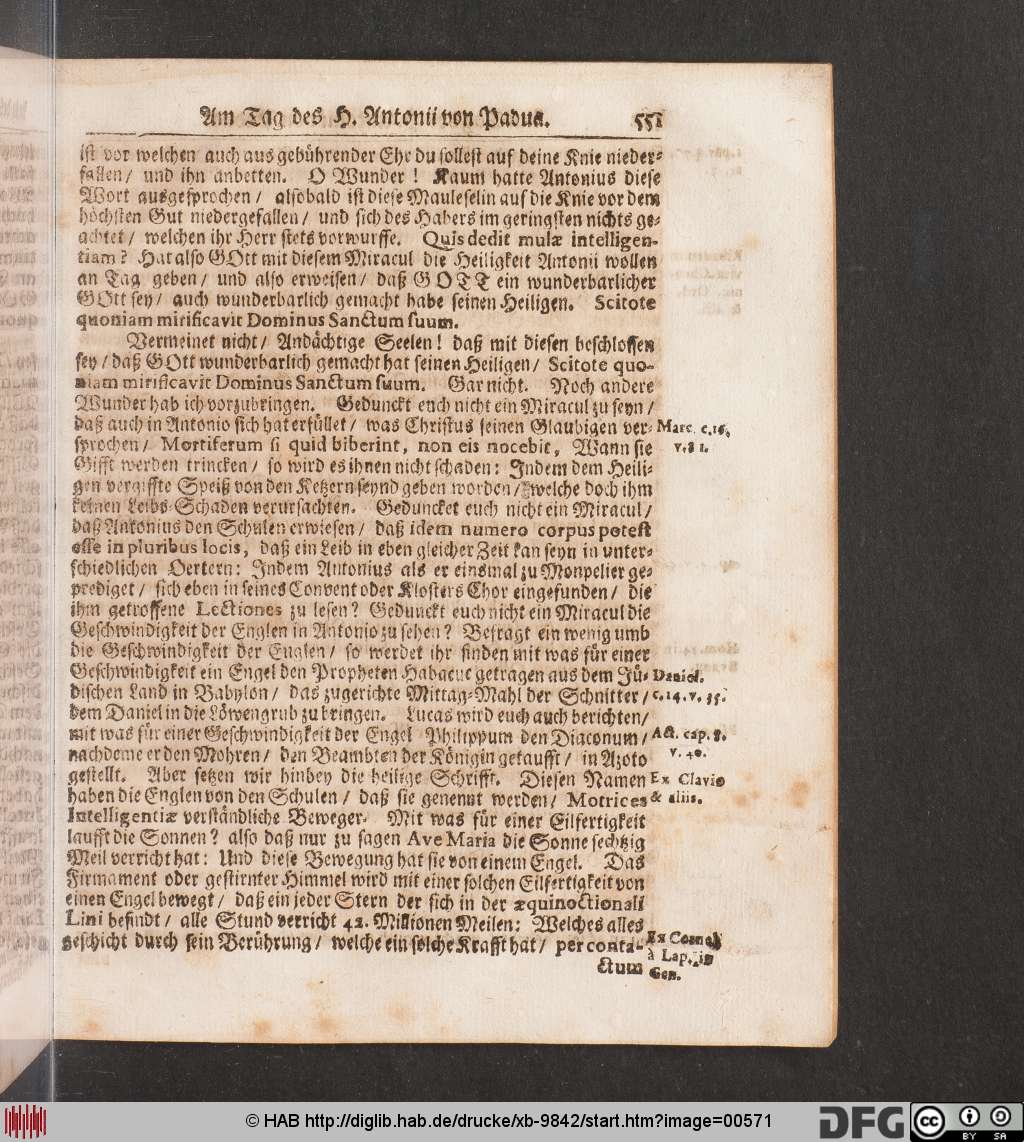 Am Tag des H. Antonii von Padua. 551
ist vor welchen auch aus gebührender Ehr du sollest auf deine Knie nieder-
fallen / und ihn anbetten. O Wunder ! Kaum hatte Antonius diese
Wort ausgesprochen / alsobald ist diese Mauleselin auf die Knie vor dem
höchsten Gut niedergefallen / und sich des Habers im geringsten nichts ge-
achtet / welchen ihr Herr stets vorwurffe. Quis dedit mulæ intelligen-
tiam ? Hat also GOtt mit diesem Miracul die Heiligkeit Antonii wollen
an Tag geben / und also erweisen / daß GOTT ein wunderbarlicher
GOtt sey / auch wunderbarlich gemacht habe seinen Heiligen. Scitote
quoniam mirificavit Dominus Sanctum suum.
Vermeinet nicht / Andächtige Seelen ! daß mit diesen beschlossen
sey / daß GOtt wunderbarlich gemacht hat seinen Heiligen / Scitote quo-
niam mirificavit Dominus Sanctum suum. Gar nicht. Noch andere
Wunder hab ich vorzubringen. Gedunckt euch nicht ein Miracul zu seyn /
daß auch in Antonio sich hat erfüllet / was Christus seinen Glaubigen ver- Marc. c. 16.
sprochen / Mortiferum si quid biberint, non eis nocebit, Wann sie v. 81.
Gifft werden trincken / so wird es ihnen nicht schaden : Indem dem Heili-
gen vergiffte Speiß von den Ketzern seynd geben worden / welche doch ihm
keinen Leibs-Schaden verursachten. Geduncket euch nicht ein Miracul /
daß Antonius den Schulen erwiesen / daß idem numero corpus potest
esse in pluribus locis, daß ein Leib in eben gleicher Zeit kan seyn in unter-
schiedlichen Oertern : Indem Antonius als er einsmal zu Monpelier ge-
prediget / sich eben in seines Convent oder Klosters Chor eingefunden / die
ihm getroffene Lectiones zu lesen ? Gedunckt euch nicht ein Miracul die
Geschwindigkeit der Englen in Antonio zu sehen ? Befragt ein wenig umb
die Geschwindigkeit der Englen / so werdet ihr finden mit was für einer
Geschwindigkeit ein Engel den Propheten Habacuc getragen aus dem Jü- Daniel.
dischen Land in Babylon / das zugerichte Mittag-Mahl der Schnitter / c. 14. v. 35.
dem Daniel in die Löwengrub zu bringen. Lucas wird euch auch berichten /
mit was für einer Geschwindigkeit der Engel Philippum den Diaconum / Act. cap. 8.
nachdeme er den Mohren / den Beambten der Königin getaufft / in Azoto v. 40.
gestellt. Aber setzen wir hinbey die heilige Schrifft. Diesen Namen Ex Clavio
haben die Englen von den Schulen / daß sie genennt werden / Motrices & aliis.
Intelligentiæ verständliche Beweger. Mit was für einer Eilfertigkeit
laufft die Sonnen ? also daß nur zu sagen Ave Maria die Sonne sechtzig
Meil verricht hat : Und diese Bewegung hat sie von einem Engel. Das
Firmament oder gestirnter Himmel wird mit einer solchen Eilfertigkeit von
einen Engel bewegt / daß ein jeder Stern der sich in der æquinoctionali
Lini befindt / alle Stund verricht 42. Millionen Meilen : Welches alles
geschicht durch sein Berührung / welche ein solche Krafft hat / per conta- Ex Cornel.
à Lap. in
ctum Gen.
© HAB http://diglib.hab.de/drucke/xb-9842/start.htm?image=00571
DFG cc BY SA